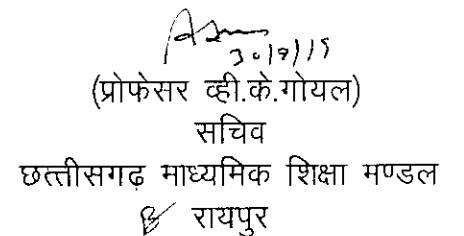 (प्रोफेसर व्ही.के.गोयल)
सचिव
छत्तीसगढ़ माध्यमिक शिक्षा मण्डल
रायपुर